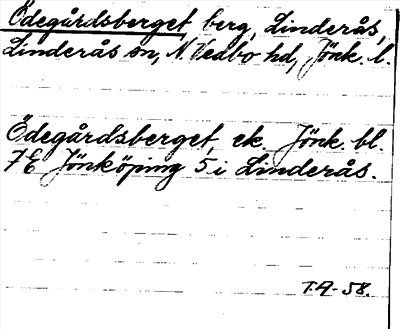 Ödegårdsberget, berg, Linderås,
Linderås sn, N. Vedbo hd, Jönk. l.
Ödegårdsberget, ek. Jönk. bl.
7E Jönköping 5 i Linderås.
T.A-58.